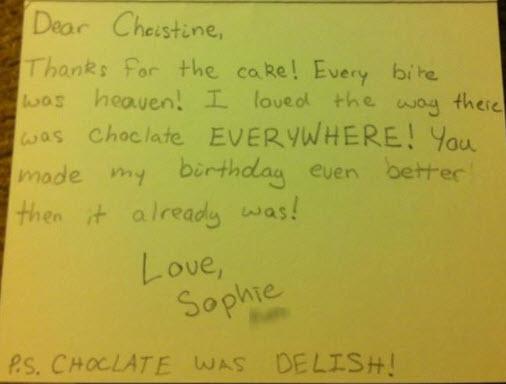 Dear Christine,
Thanks for the cake! Every bite
was heaven! I loved the way there
was choclate EVERYWHERE! You
made my birthday even better
then it already was!
Love,
Sophie
P.S. CHOCLATE WAS DELISH!